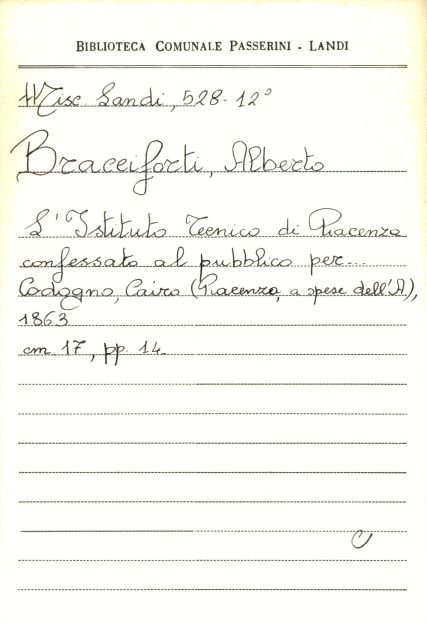 BIBLIOTECA COMUNALE PASSERINI - LANDI
Misc Landi, 528-12°
Bracciforti, Alberto
L'Istituto Tecnico di Piacenza
confessato al pubblico per...
Codogno, Cairo (Piacenza, a spese dell'A),
1863
cm 17, pp. 14
C